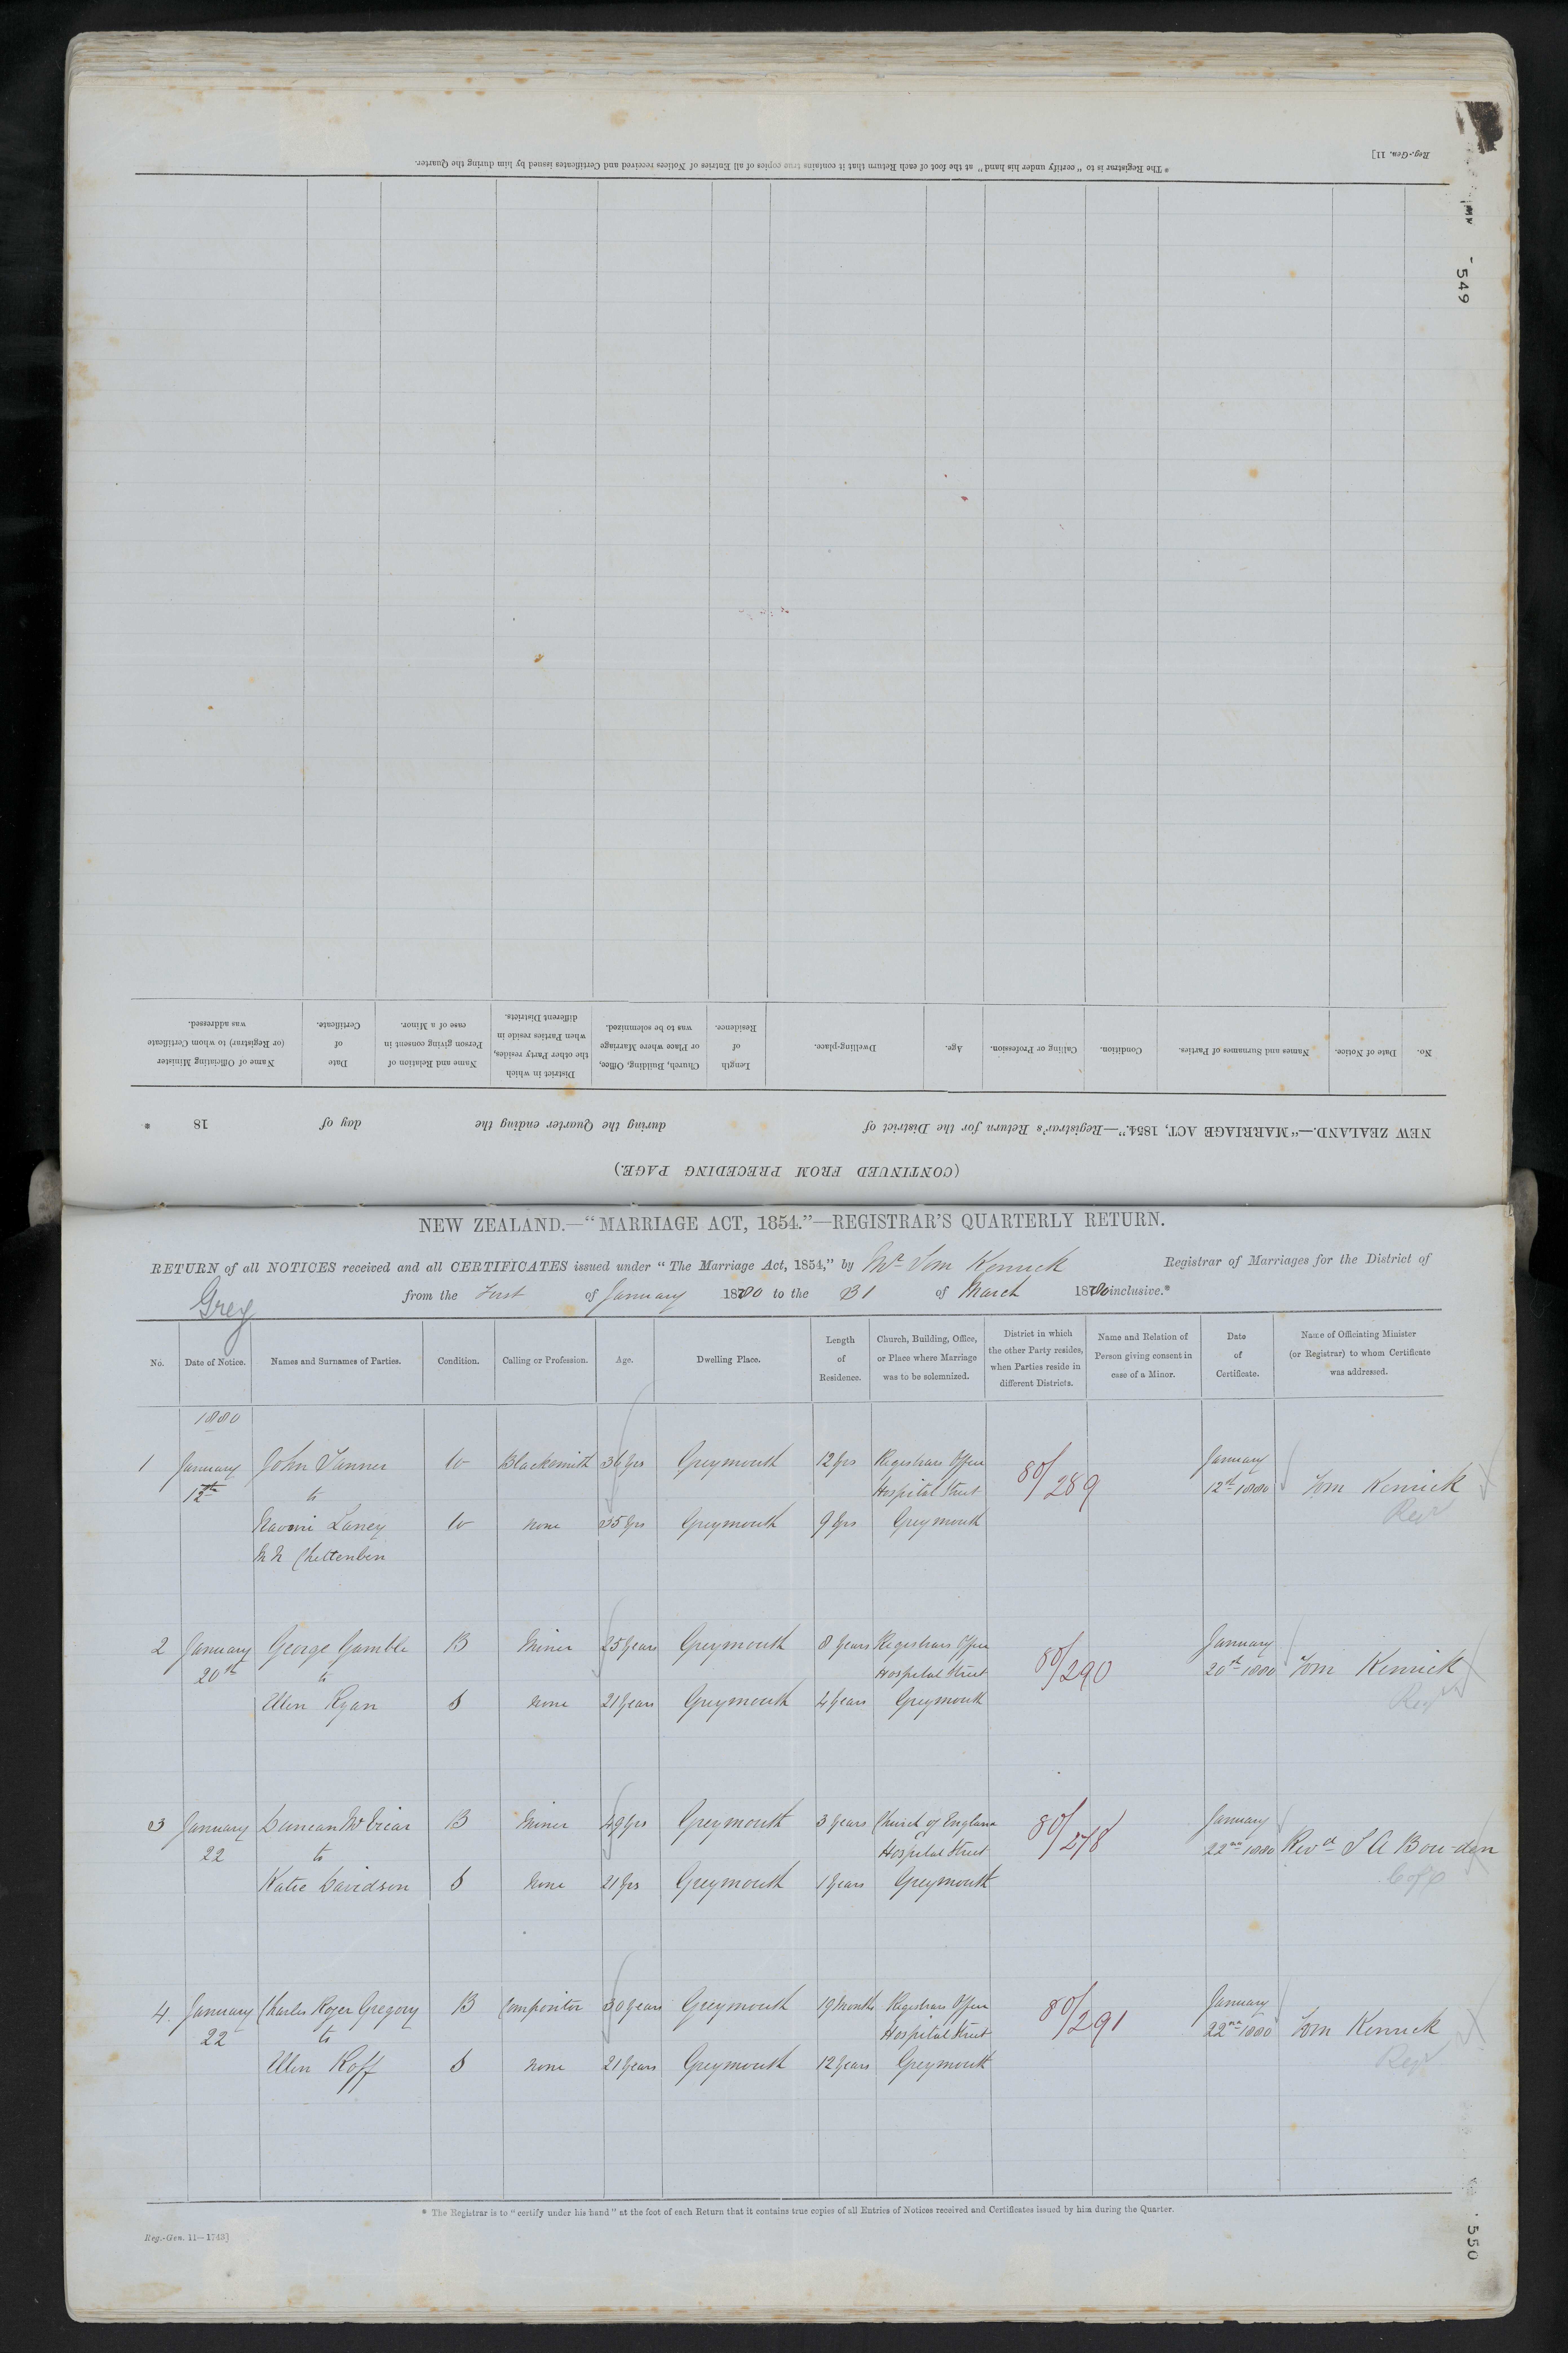 * The Registrar is to "certify under his hand" at the foot of each Return that it contains true copies of all Entries of Notices received and Certificates issued by him during the Quarter.
Reg.-Gen. 11]
549
No. Date of Notice. Names and Surnames of Parties. Condition. Calling or Profession. Age. Dwelling-place. Length of Residence. Church, Building, Office, or Place where Marriage was to be solemnized. District in which the other Party resides, when Parties reside in different Districts. Name and Relation of Person giving consent in case of a Minor. Date of Certificate. Name of Officiating Minister (or Registrar) to whom Certificate was addressed.
NEW ZEALAND.—"MARRIAGE ACT, 1854."—Registrar's Return for the District of during the Quarter ending the day of 18 *
(CONTINUED FROM PRECEDING PAGE.)
NEW ZEALAND.—"MARRIAGE ACT, 1854."—REGISTRAR'S QUARTERLY RETURN.
RETURN of all NOTICES received and all CERTIFICATES issued under "The Marriage Act, 1854," by Mr Tom Kenrick Registrar of Marriages for the District of
Grey from the First of January 1880 to the 31 of March 1880 inclusive.*
No. Date of Notice. Names and Surnames of Parties. Condition. Calling or Profession. Age. Dwelling Place. Length of Residence. Church, Building, Office, or Place where Marriage was to be solemnized. District in which the other Party resides, when Parties reside in different Districts. Name and Relation of Person giving consent in case of a Minor. Date of Certificate. Name of Officiating Minister (or Registrar) to whom Certificate was addressed.
1880
1 January John Tanner W Blacksmith 36 yrs Greymouth 12 yrs Registrars Office 80/289 January
12th to Hospital Street 12th 1880 Tom Kenrick
Naomi Laney W none 35 yrs Greymouth 9 yrs Greymouth Regr
NN Cheltenben
2 January George Gamble B Miner 25 years Greymouth 8 years Registrars Office 80/290 January
20th to Hospital Street 20th 1880 Tom Kenrick
Ellen Ryan S none 21 years Greymouth 4 years Greymouth Regr
3 January Duncan McVicar B Miner 49 yrs Greymouth 3 years Church of England 80/278 January
22 to Hospital Street 22nd 1880 Revd S A Bowden
Katie Davidson S None 21 yrs Greymouth 1 years Greymouth C of E
4 January Charles Roger Gregory B Compositor 30 years Greymouth 19 months Registrars Office 80/291 January
22 to Hospital Street 22nd 1880 Tom Kenrick
Ellen Roff S none 21 years Greymouth 12 years Greymouth Regr
* The Registrar is to "certify under his hand" at the foot of each Return that it contains true copies of all Entries of Notices received and Certificates issued by him during the Quarter.
Reg.-Gen. 11—1743]
550